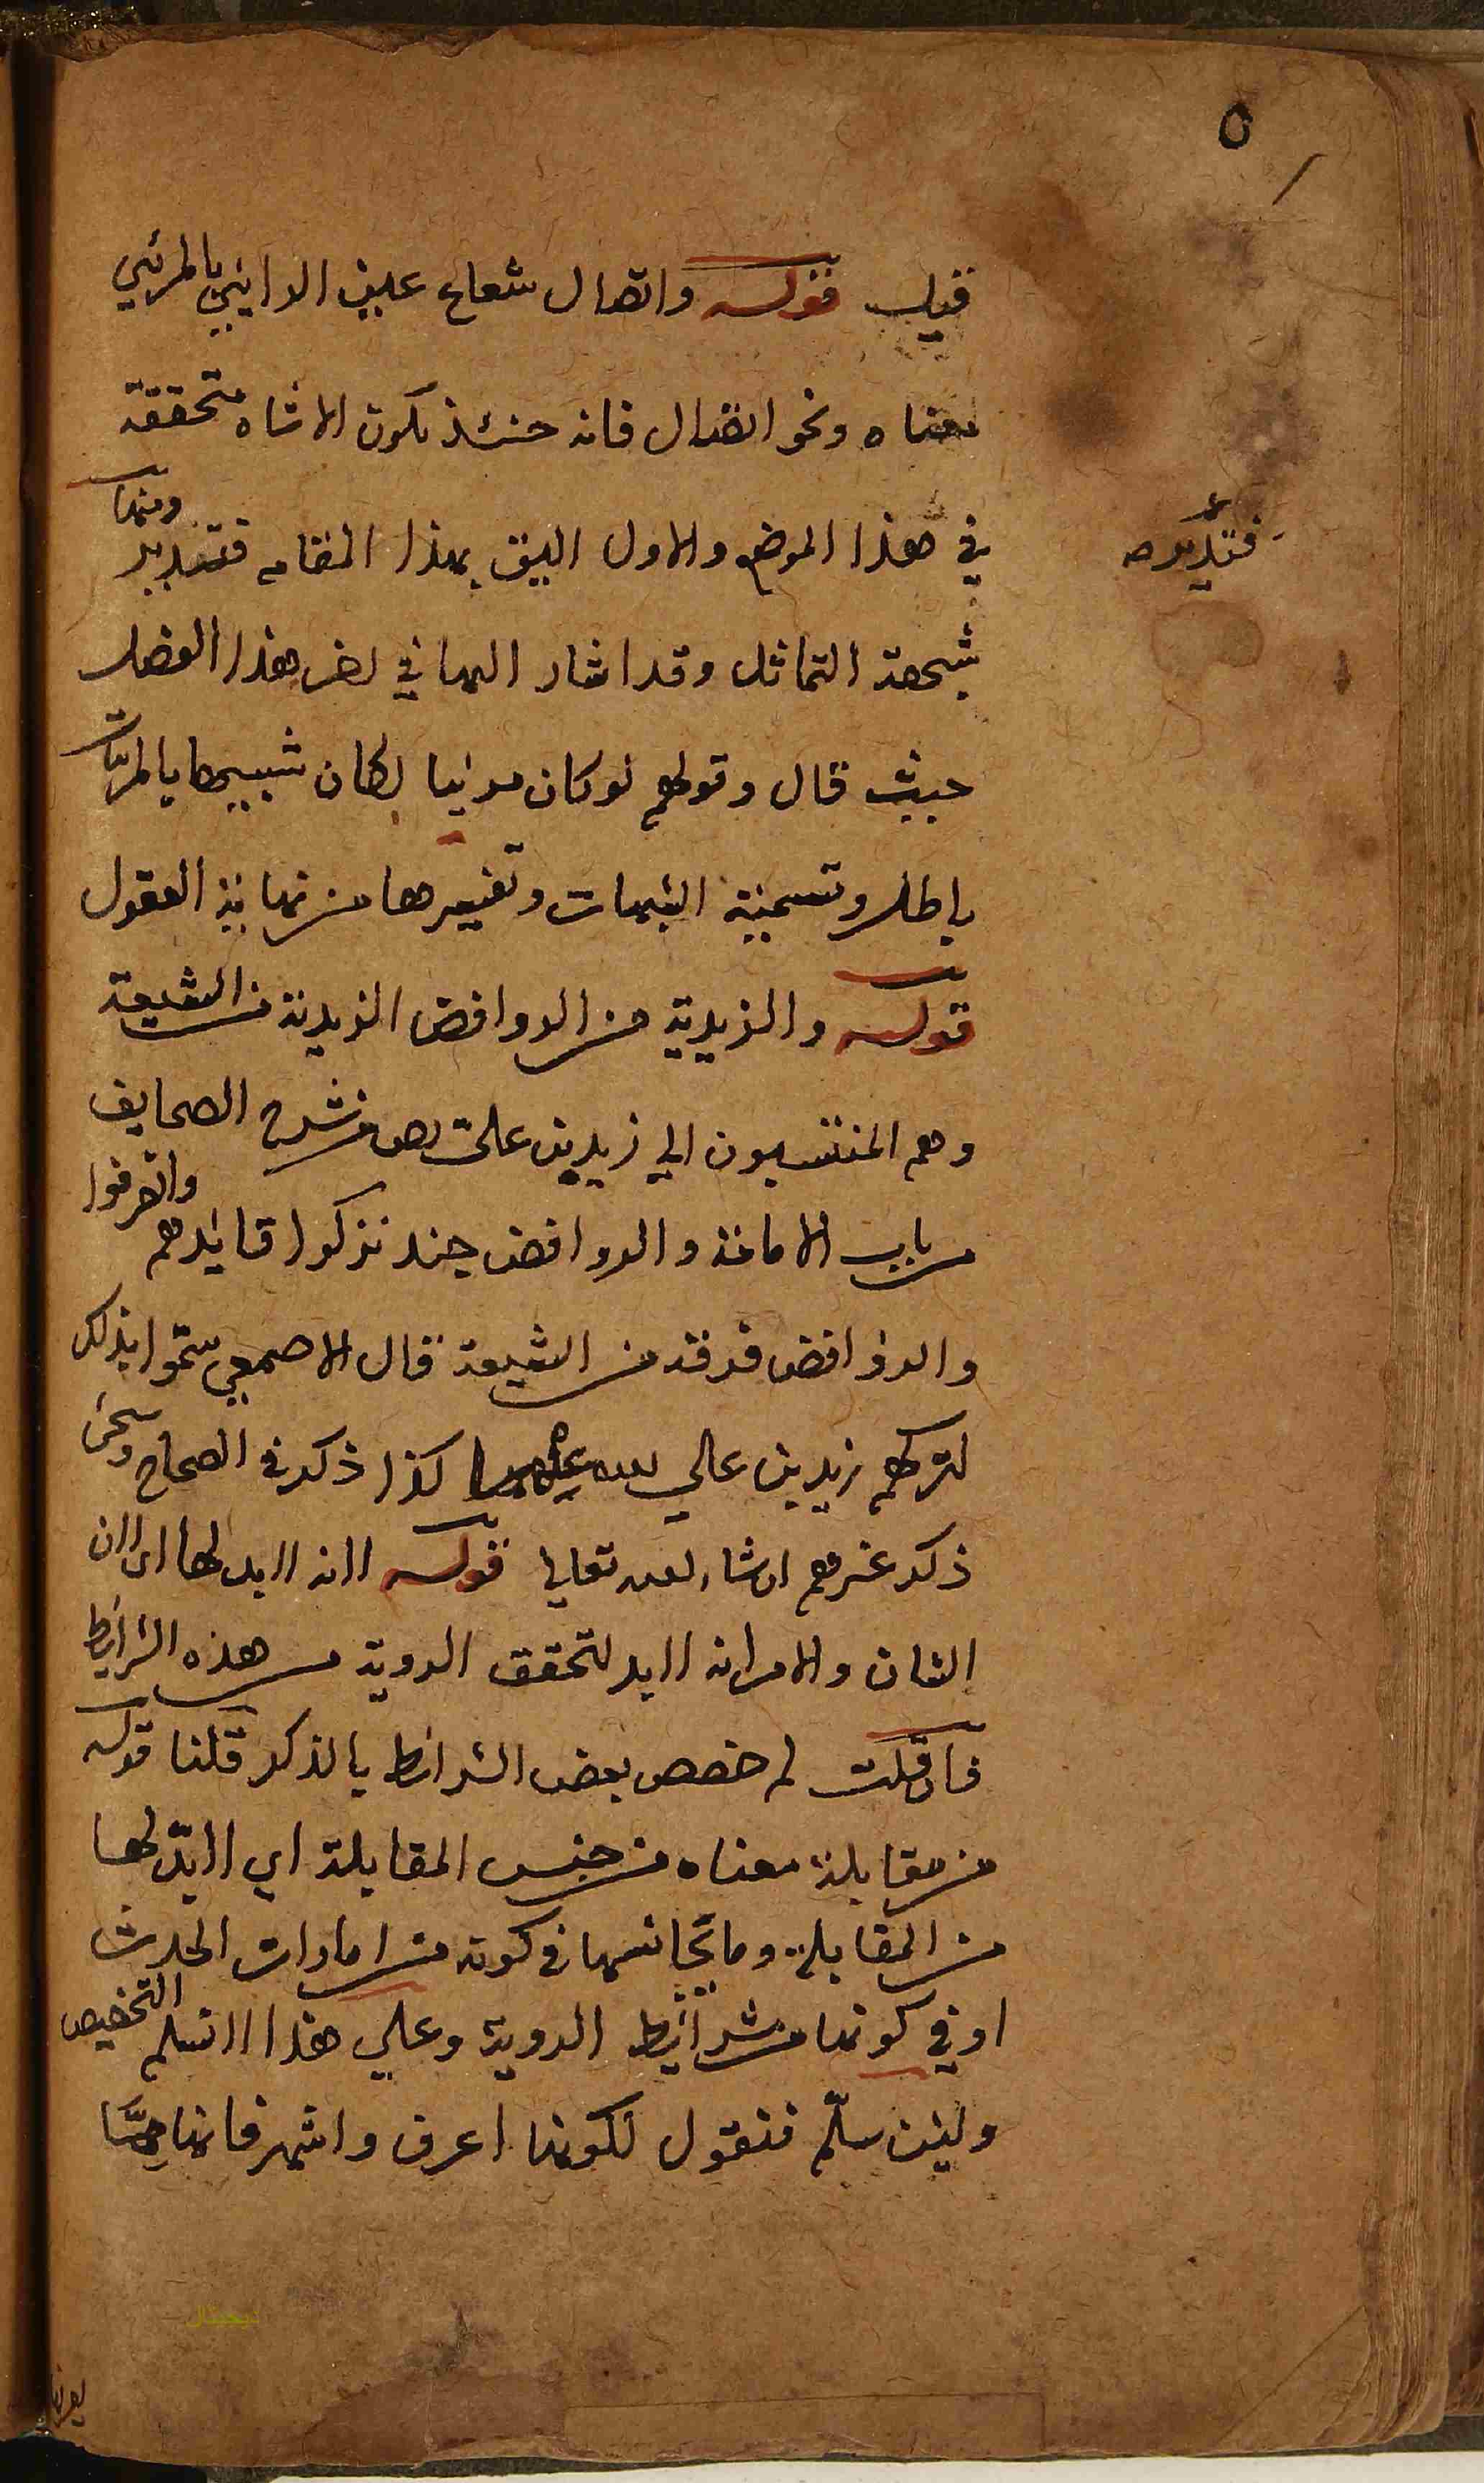 ٥
قيل قوله واتصال شعاع عين الرايي بالمرئي
معناه ونحو اتصال فانه حينئذ يكون الاشاه متحققة
في هذا الموضع والاول اليق بهذا المقام فتدبر ومنها
فتدبر صح
شبهة التماثل وقد اشار اليها في اخر هذا الفصل
حيث قال وقولهم لو كان مرئيا لكان شبيها بالمرئيات
باطل وتسمية الشبهات وتفسيرها من نهاية العقول
قوله والزيدية من الروافض الزيدية من الشيعة
وهم المنتسبون الي زيد بن علي من شرح الصحايف
من باب الامامة والروافض جند تركوا قائدهم وانصرفوا
والروافض فرقة من الشيعة قال الاصمعي سموا بذلك
لتركهم زيد بن علي كذا ذكر في الصحاح وسيجئ
ذكر غيرهم ان شاء الله تعالي قوله لانه لابد لها اي لان
الشان والامر انه لابد لتحقق الروية من هذه الشرايط
فان قلت لم خصص بعض الشرائط بالذكر قلنا قوله
من مقابلة معناه من جنس المقابلة اي لابد لها
من المقابلة وما يجانسها في كونه من امارات الحدث
او في كونها من شرائط الروية وعلي هذا لا نسلم التخصيص
ولئن سلم فنقول لكونها اعرف واشهر فانها
ديجيتال